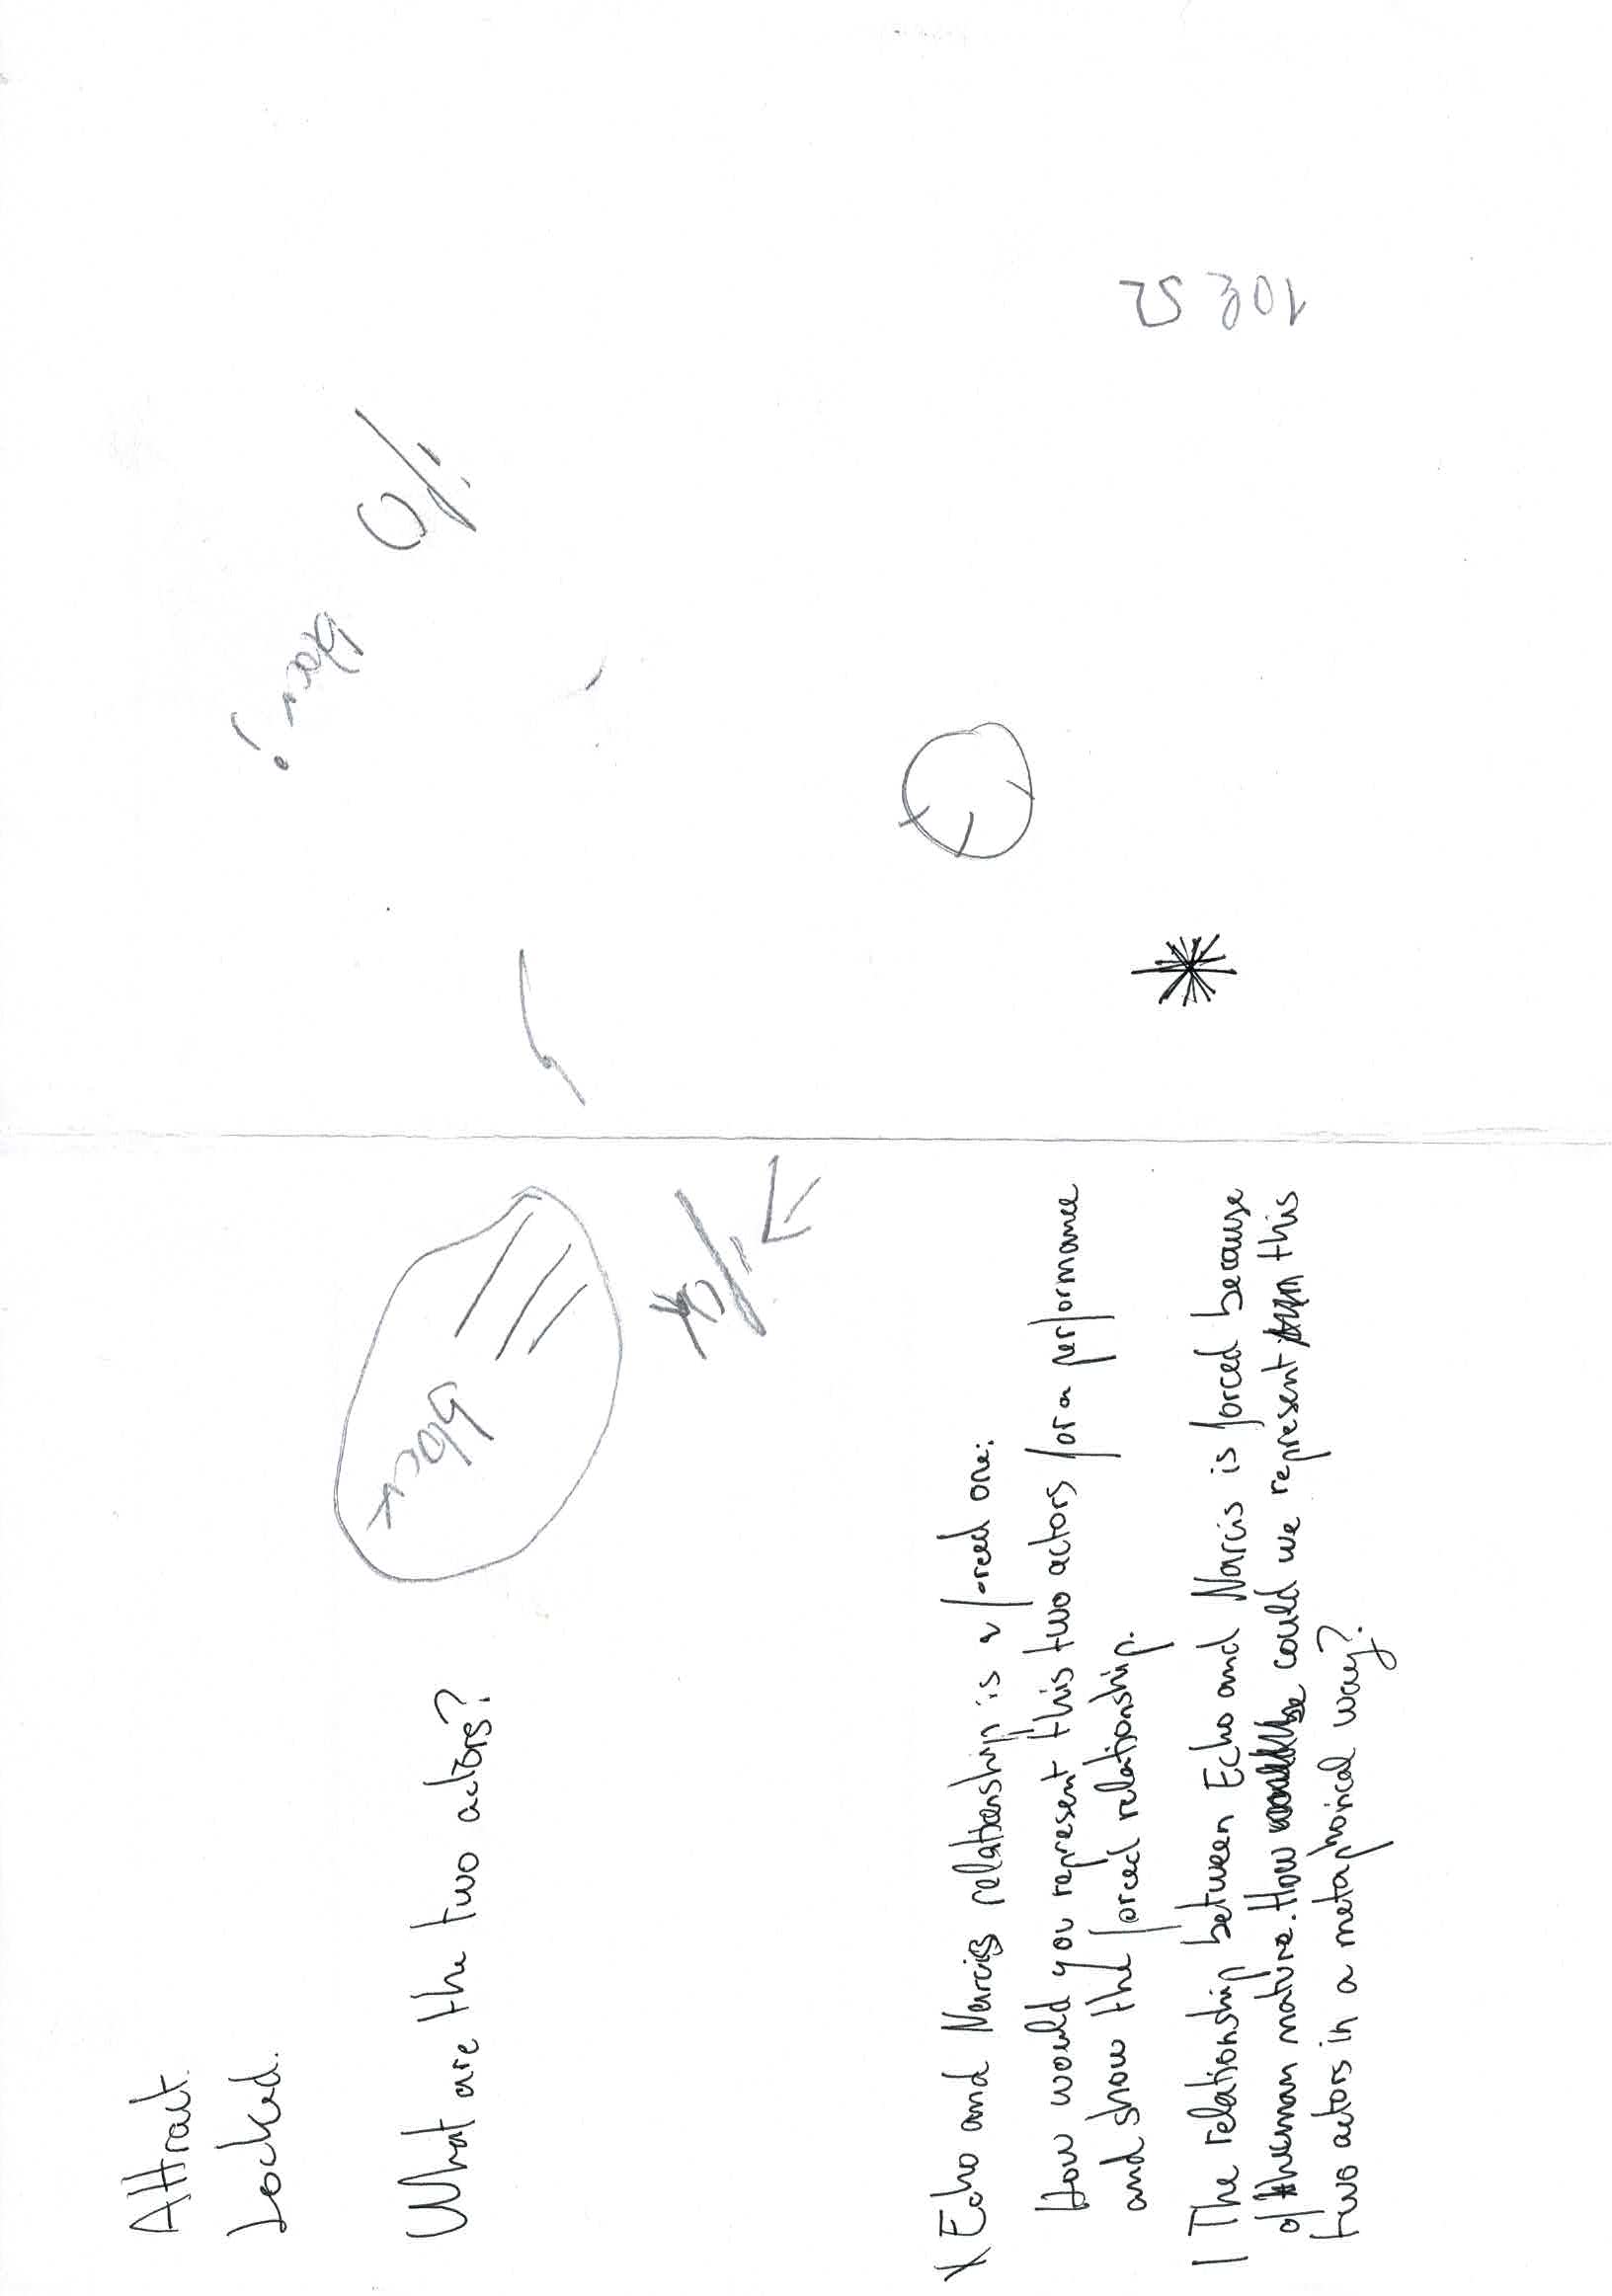 Attract.
Locked.
What are the two actors?
X Echo and Narcis relationship is a forced one:
How would you represent this two actors for a performance
and show the forced relationship.
| The relationship between Echo and Narcis is forced because
of human nature. How could we represent this
two actors in a metaphorical way?
10k Ω